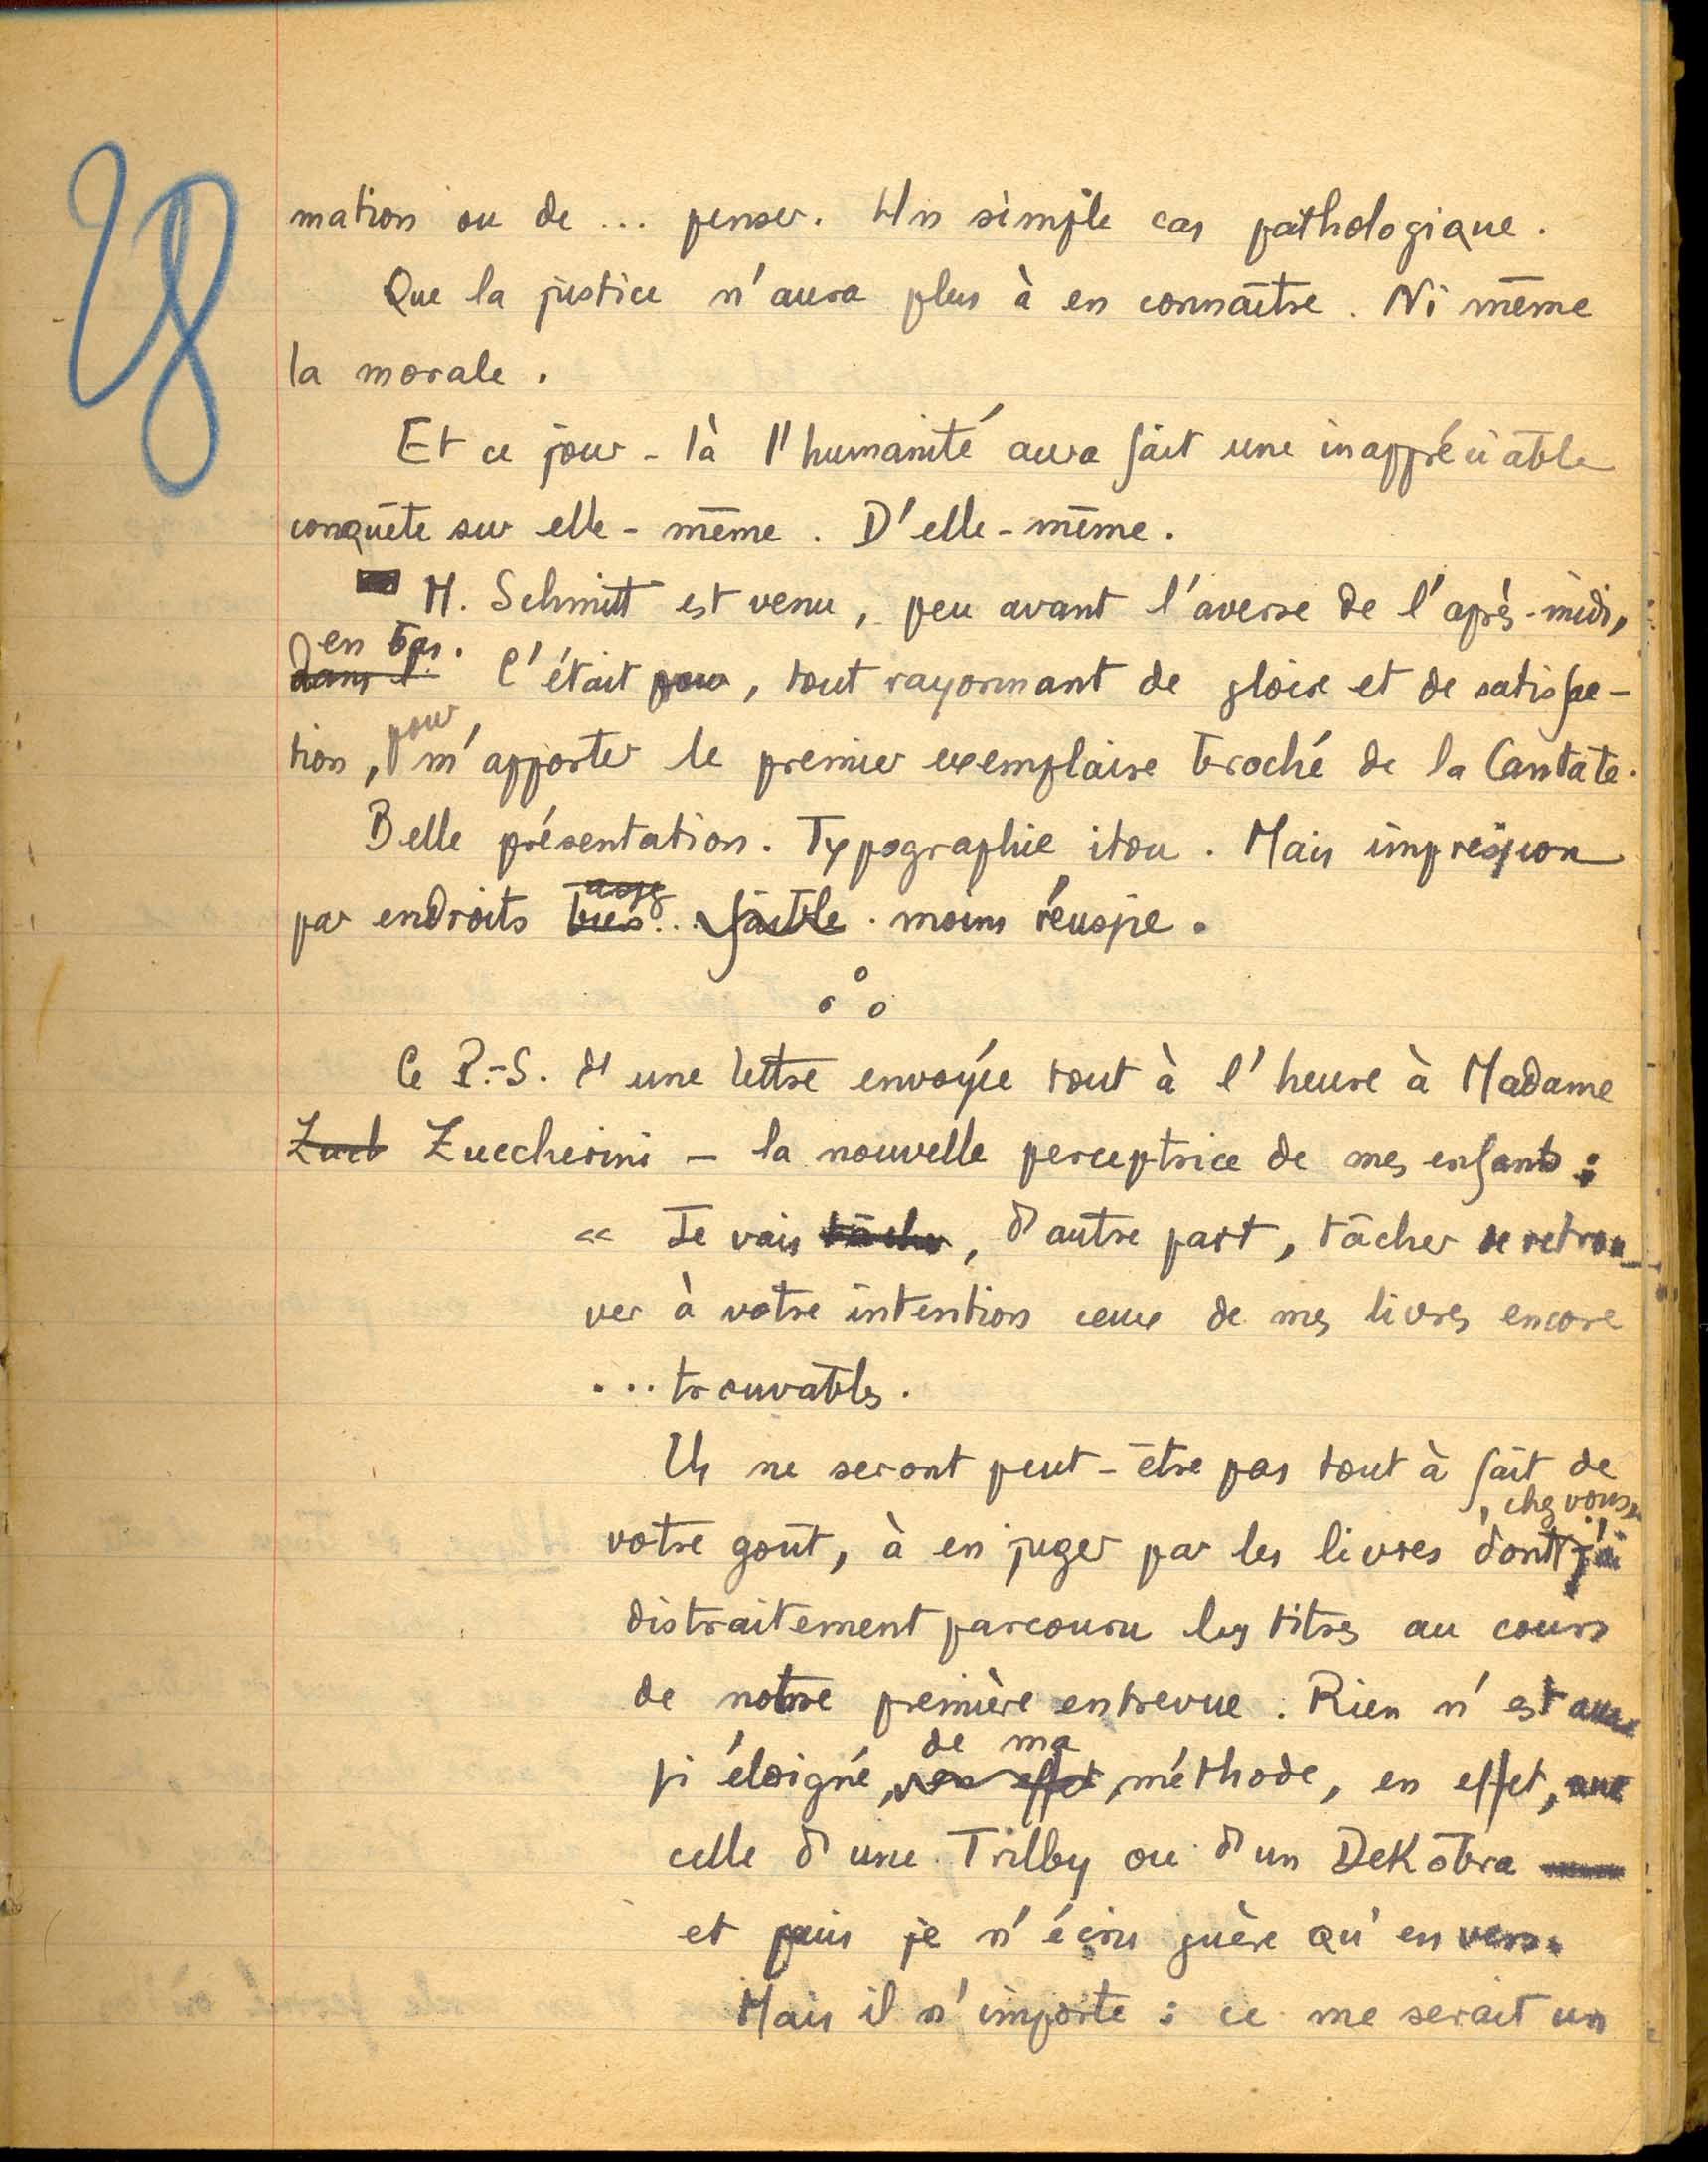 28
mation ou de ... penser. Un simple cas pathologique.
Que la justice n'aura plus à en connaître. Ni même
la morale.
Et ce jour-là l'humanité aura fait une inappréciable
conquête sur elle-même. D'elle-même.
M. Schmitt est venu, peu avant l'averse de l'après-midi,
en bas.
dans l' C'était pour, tout rayonnant de gloire et de satisfac-
pour
tion, m'apporter le premier exemplaire broché de la Cantate.
Belle présentation. Typographie itou. Mais impression
assez
par endroits très.. faible. moins réussie.
Ce P.-S. d'une lettre envoyée tout à l'heure à Madame
Zuch Zuccherini – la nouvelle perceptrice de mes enfants :
« Je vais tâcher, d'autre part, tâcher de retrou-
ver à votre intention ceux de mes livres encore
...trouvables.
Ils ne seront peut-être pas tout à fait de
, chez vous,
votre goût, à en juger par les livres dont j'ai
distraitement parcouru les titres au cours
de notre première entrevue. Rien n'est aus
de ma
si éloigné, en effet, méthode, en effet, que
celle d'une Trilby ou d'un DeKobra
et puis je n'écris guère qu'en vers.
Mais il n'importe : ce me serait un